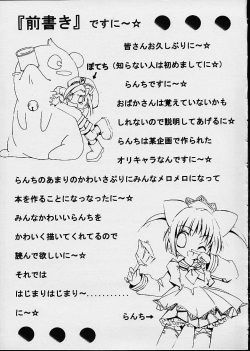 『前書き』ですに～☆
皆さんお久しぶりに～☆
ぽてち
（知らない人は初めましてに☆）
らんちですに☆
おばかさんは覚えていないかも
しれないので説明してあげるに☆
らんちは某企画で作られた
オリキャラなんですに～☆
らんちのあまりのかわいさぶりにみんなメロメロになって
本を作ることになったなったに～☆
みんなかわいいらんちを
かわいく描いてくれてるので
読んで欲しいに～☆
それでは
はじまりはじまり～..........
に～☆
らんち→